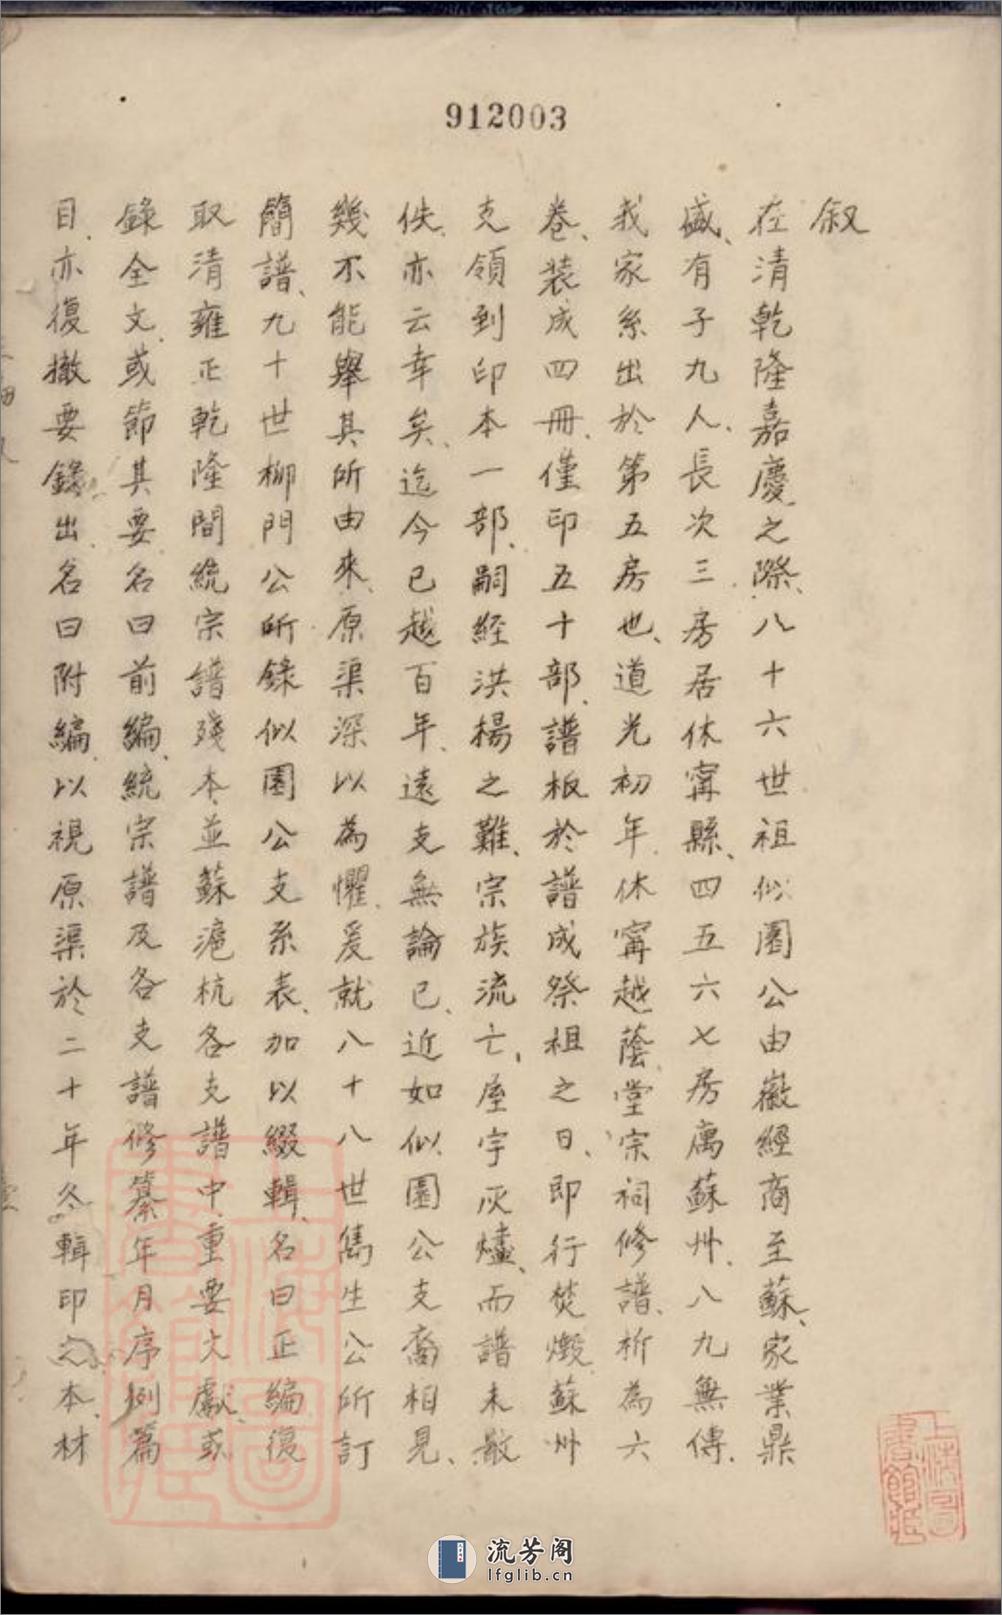 912003
叙
在清乾隆嘉慶之際、八十六世祖似園公由徽經商至蘇、家業鼎
盛、有子九人、長次三房居休寧縣、四五六七房寓蘇州、八九無傳、
我家系出於第五房也、道光初年、休寧越蔭堂宗祠修譜、析為六
卷、裝成四冊、僅印五十部、譜板於譜成祭祖之日、即行焚燬、蘇州
支領到印本一部、嗣經洪楊之難、宗族流亡、屋宇灰燼、而譜未散
佚、亦云幸矣、迄今已越百年、遠支無論已、近如似園公支裔相見、
幾不能舉其所由來、原渠深以為懼、爰就八十八世雋生公所訂
簡譜、九十世柳門公所錄似園公支系表、加以綴輯、名曰正編、復
取清雍正乾隆間統宗譜殘本、並蘇滬杭各支譜中重要文獻、或
錄全文、或節其要、名曰前編、統宗譜及各支譜修纂年月序例篇
目、亦復撤要錄出、名曰附編、以視原渠於二十年冬輯印之本、材
上海圖書館藏
上海圖書館藏
流芳阁
lfglib.cn